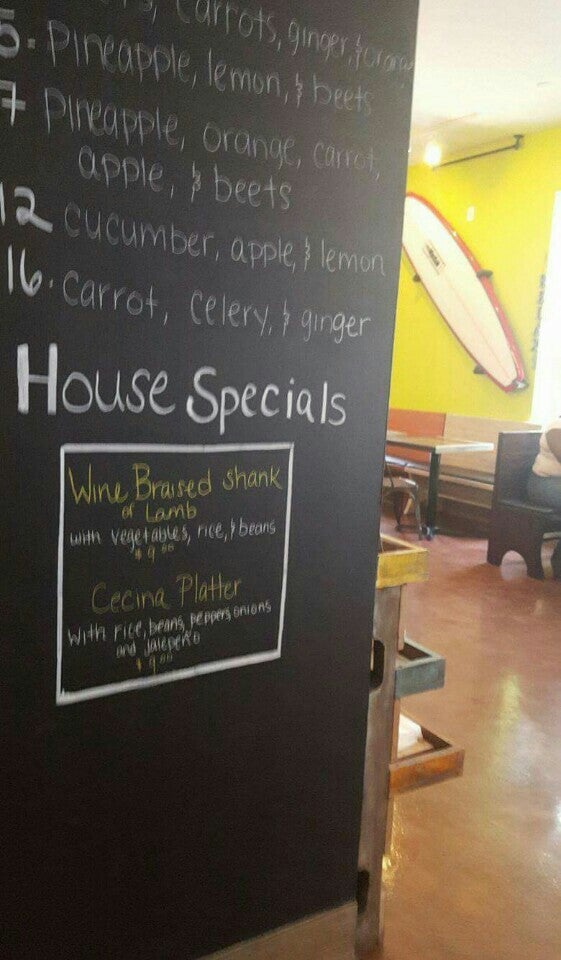 carrots, ginger, & orange
5. Pineapple, lemon, & beets
7 Pineapple, orange, carrot,
apple, & beets
12 cucumber, apple, & lemon
16. Carrot, celery, & ginger
House Specials
Wine Braised shank
of Lamb
with vegetables, rice, & beans
$9.00
Cecina Platter
with rice, beans, peppers, onions
and jalepeño
$9.00